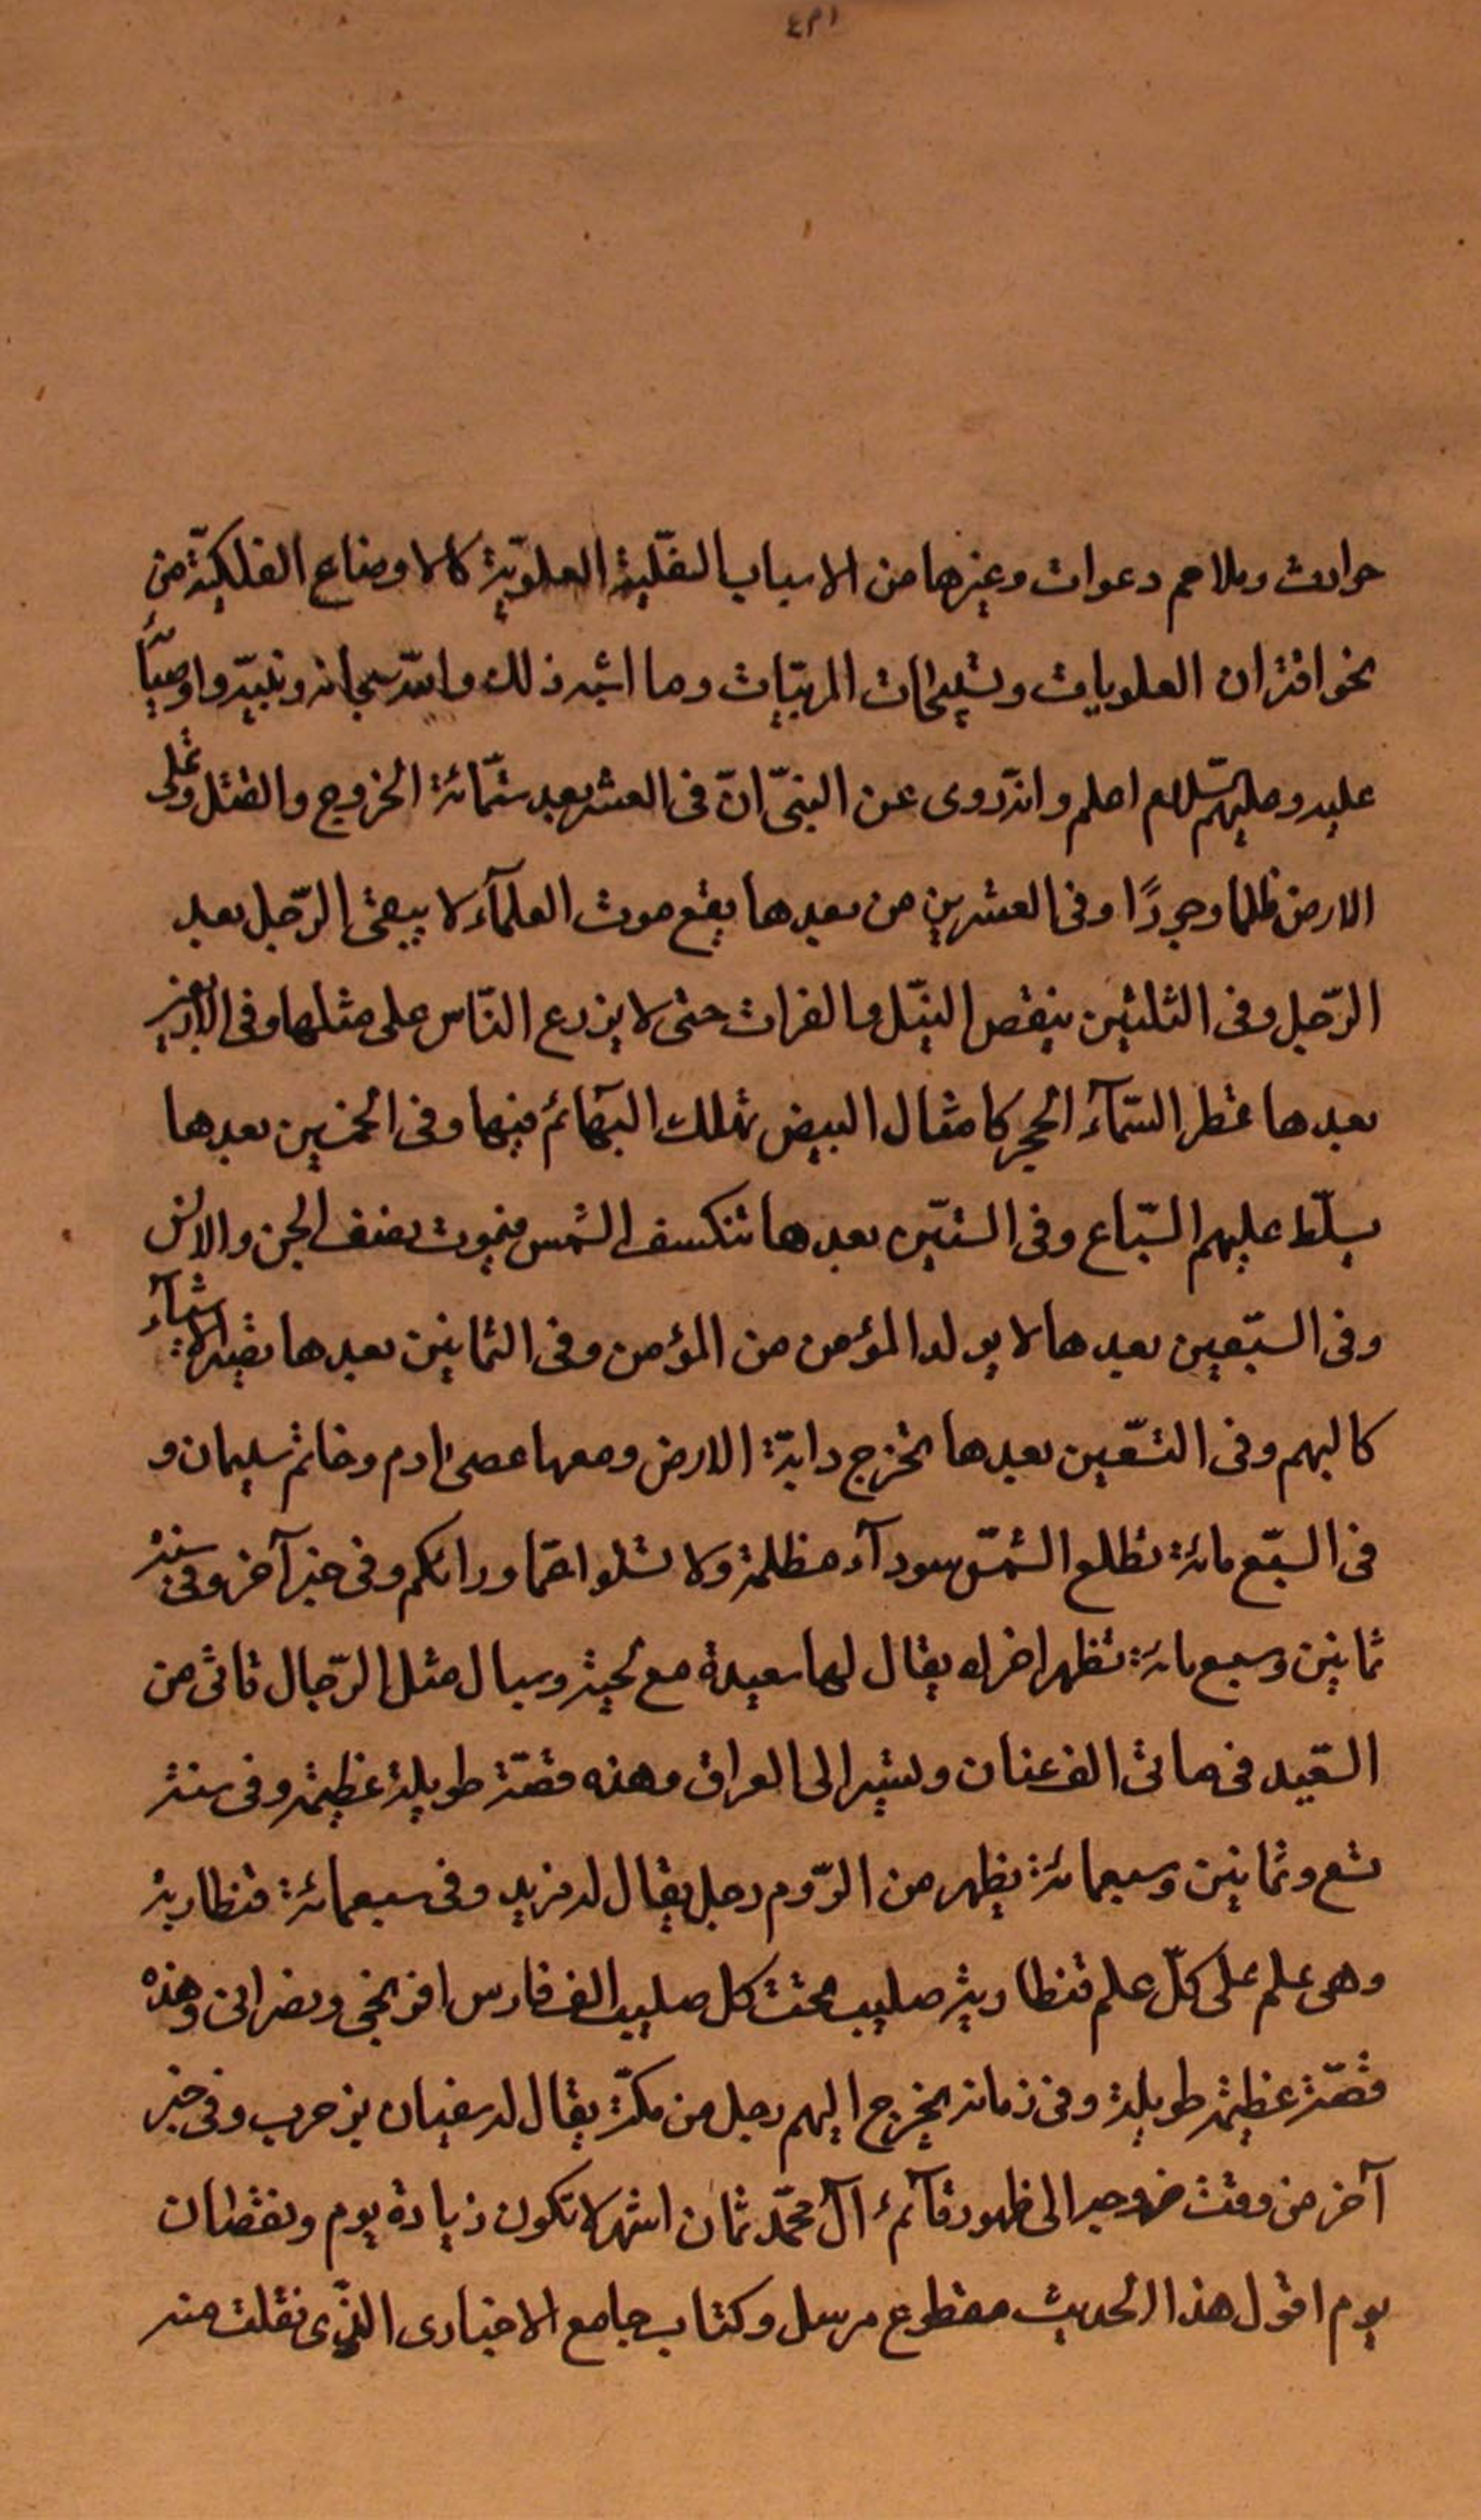 ٤٣١
حوادث وملاحم دعوات وغيرها من الاسباب النقليّة العلويّة كالاوضاع الفلكيّة من
نحو اقتران العلويات وتثليثات المربيّات وما اشبه ذلك والله سبحانه ونبيّه واوصيآء
عليه وعليهم السّلام اعلم وانه روى عن النبىّ انّ فى العشر بعد ستّمائة الخروج والقتل وتملى
الارض ظلما وجورًا وفى العشرين من بعدها يقع موت العلمآء لا يبقى الرّجل بعد
الرّجل وفى الثلثين ينقص النيّل والفرات حتى لا يزرع النّاس على مثلها وفى الاربعين
بعدها تمطر السّمآء الحجر كامثال البيض تهلك البهآئم فيها وفى الخمسين بعدها
يسلّط عليهم السّباع وفى الستيّن بعدها تنكسف الشمس فيموت نصف الجن والانس
وفى السبّعين بعدها لا يولد المؤمن من المؤمن وفى الثمانين بعدها تصير النسآء
كالبهم وفى التسّعين بعدها تخرج دابّة الارض ومعها عصى ادم وخاتم سليمان و
فى السبّع مائة تطلع الشمّس سودآء مظلمة ولا تسئلوا عمّا ورائكم وفى خبر آخر وفى سنة
ثمانين وسبع مائة تظهر امراه يقال لها سعيدة مع لحية وسبال مثل الرّجال تاتى من
الصّعيد فى مائتى الف عنان وتسير الى العراق وهذه قصّة طويلة عظيمة وفى سنة
تسع وثمانين وسبعمائة يظهر من الرّوم رجل يقال له مزيد وفى سبعمائة قنطارية
وهى علم على كلّ علم قنطارية صليب تحت كل صليب الف فارس افرنجى ونصرانى وهذه
قصّة عظيمة طويلة وفى زمانه يخرج اليهم رجل من مكّة يقال له سفيان بن حرب وفى خبر
آخر من وقت خروجه الى ظهور قآئم آل محمّد ثمان اشهر لا تكون زيادة يوم ونقصان
يوم اقول هذا الحديث مقطوع مرسل وكتاب جامع الاخبارى الذّى نقلت منه